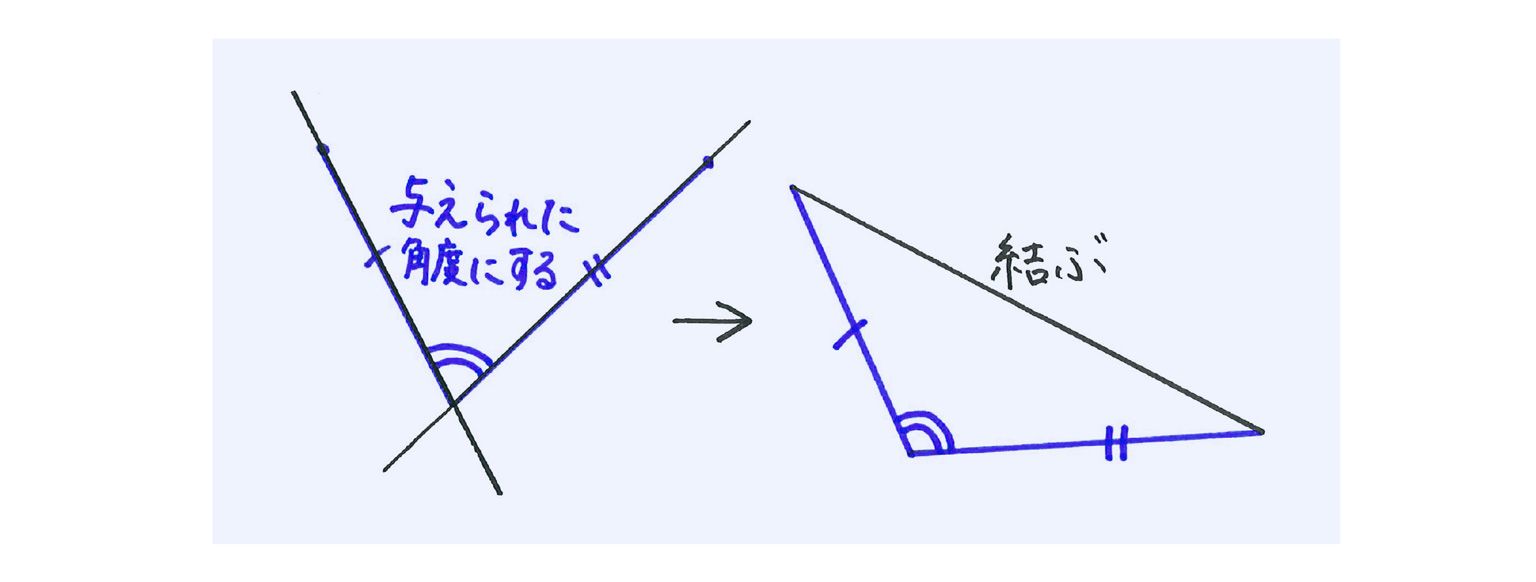 与えられた
角度にする
結ぶ